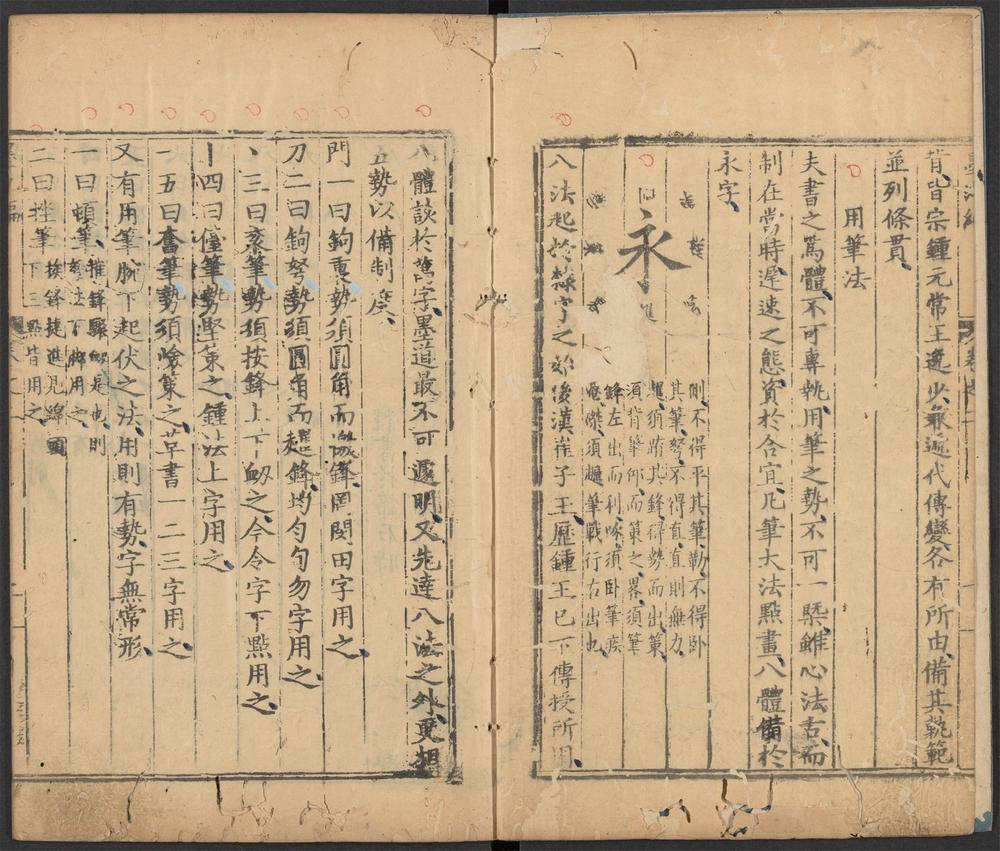 肯皆宗鍾元常王逸少兼遞代傳變各有所由備其軌範
並列條貫
用筆法
夫書之爲體不可專執用筆之勢不可一槩雖心法古而
制在當時遲速之態資於合宜凡筆大法點畫八體備於
永字
永
則不得平其筆勒不得卧
其筆努不得直直則無力
趯須䠧其鋒得勢而出策
須背筆仰而策之畧須筆
鋒左出而利啄須卧筆疾
罨磔須趯筆戰行右出也
八法起於隸字之始後漢崔子玉歷鍾王已下傳授所用
八體該於萬字墨道最不可遽明又先達八法之外更相
五勢以備制度
門一曰鉤裹勢須圓角而激鋒罔閔田字用之
刀二曰鉤努勢須圓角而趯鋒均勻句勿字用之
丶三曰衮筆勢須按鋒上下衂之今令字下點用之
丨四曰僅筆勢堅策之鍾法上字用之
一五曰奮筆勢須嶮策之草書一二三字用之
又有用筆腕下起伏之法用則有勢字無常形
一曰頓筆摧鋒驟衂是也則
努法下脚用之
二曰挫筆挨鋒捷進見蹄圖
下三點皆用之